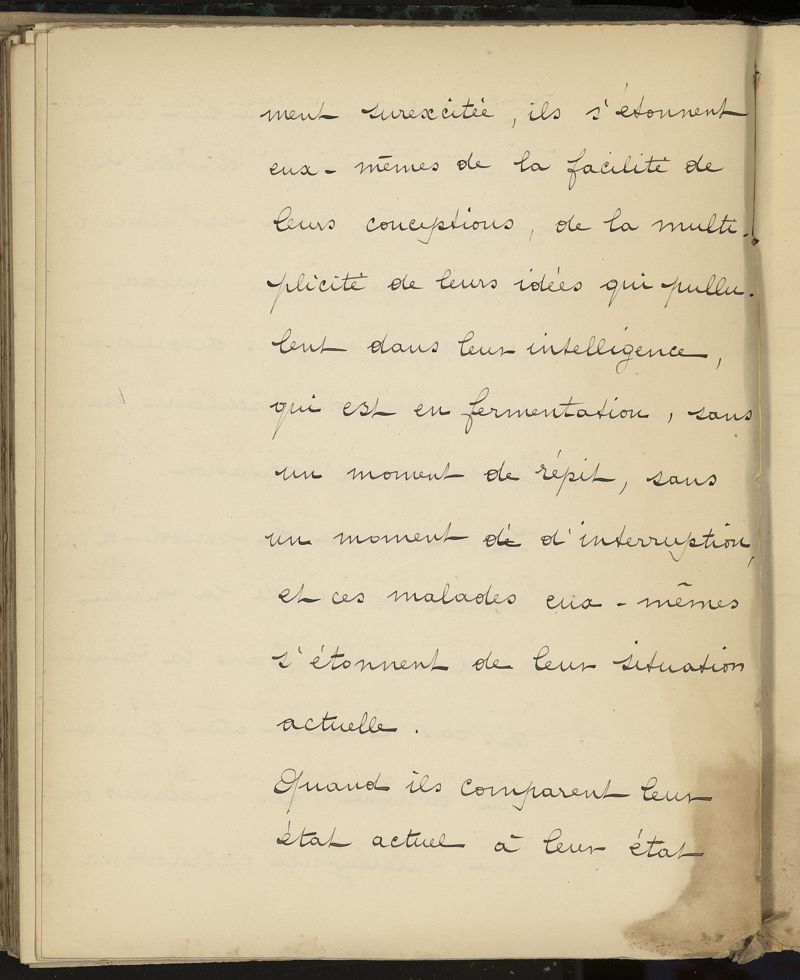 ment surexcitée, ils s'étonnent
eux-mêmes de la facilité de
leurs conceptions, de la multi-
plicité de leurs idées qui pullu-
lent dans leur intelligence,
qui est en fermentation, sans
un moment de répit, sans
un moment de d'interruption,
et ces malades eux-mêmes
s'étonnent de leur situation
actuelle.
Quand ils comparent leur
état actuel à leur état